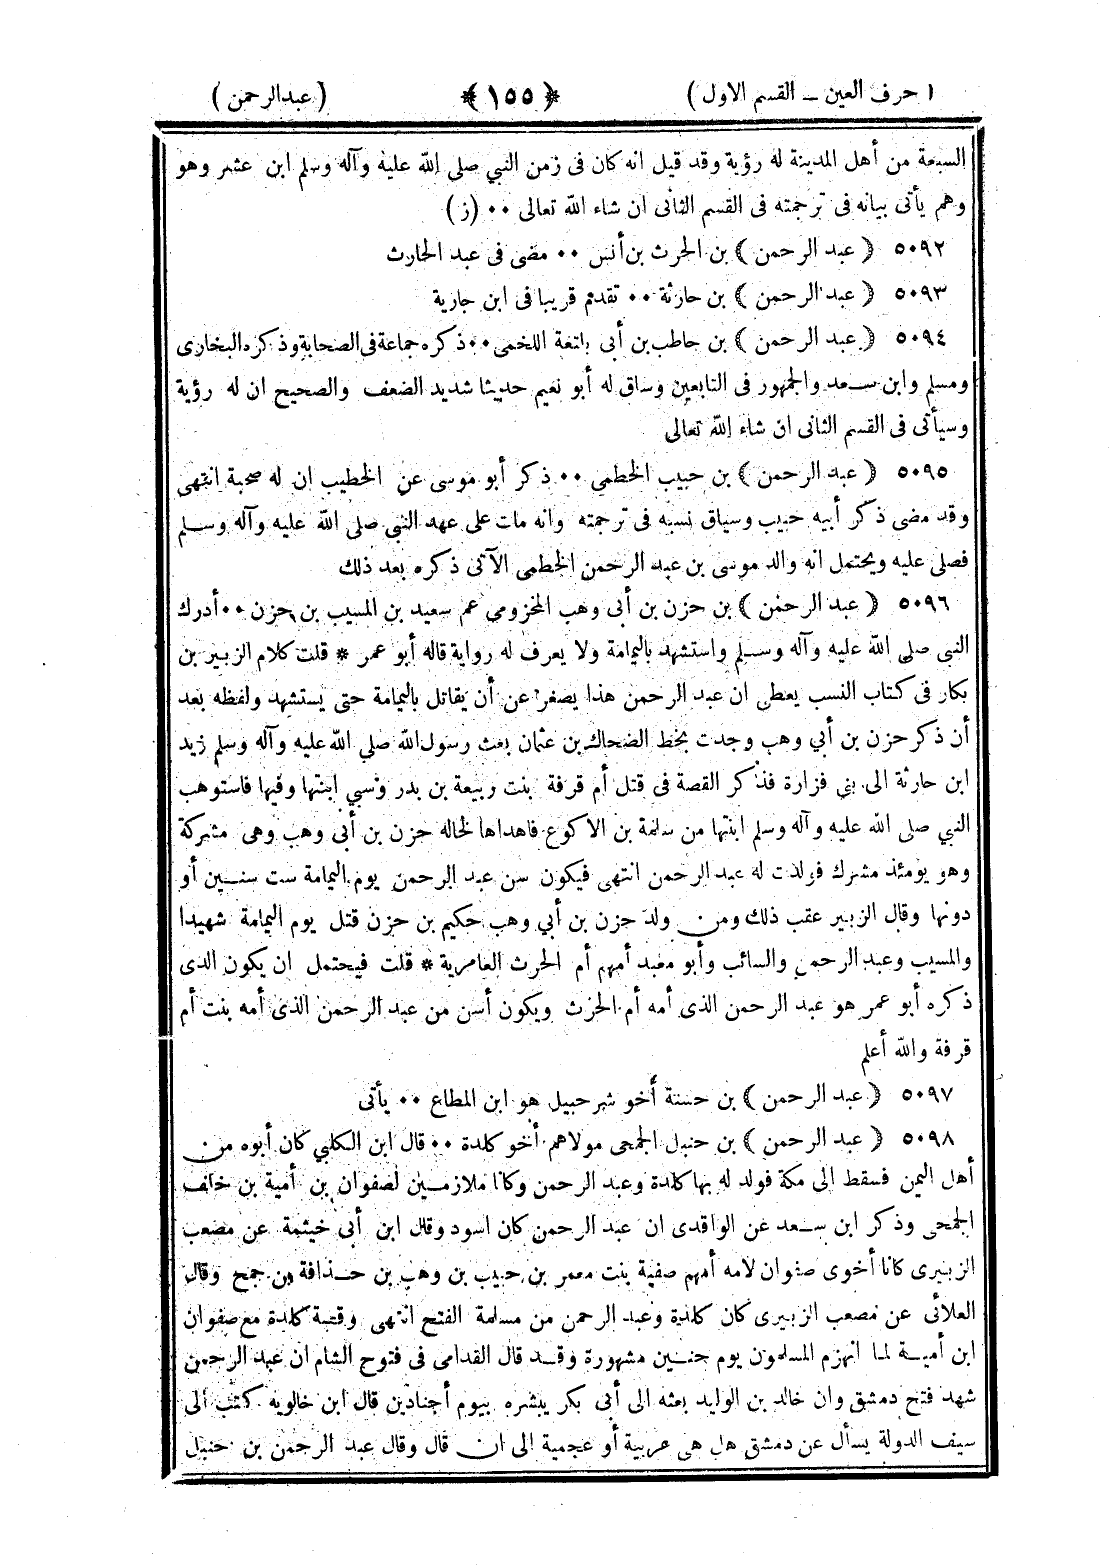 ( حرف العين ــ القسم الاول ) ﴿ ١٥٥ ﴾ ( عبدالرحمن )
السبعة من أهل المدينة له رؤية وقد قيل انه كان فى زمن النبي صلى الله عليه وآله وسلم ابن عشر وهو
وهم يأتى بيانه فى ترجمته فى القسم الثانى ان شاء الله تعالى ٠٠ ( ز )
٥٠٩٢ ﴿ عبد الرحمن ﴾ بن الحرث بن أنس ٠٠ مضى فى عبد الحارث
٥٠٩٣ ﴿ عبد الرحمن ﴾ بن حارثة ٠٠ تقدم قريبا فى ابن جارية
٥٠٩٤ ﴿ عبد الرحمن ﴾ بن حاطب بن أبى بلتعة اللخمى ٠٠ ذكره جماعة فى الصحابة وذكره البخارى
ومسلم وابن سعد والجمهور فى التابعين وساق له أبو نعيم حديثا شديد الضعف والصحيح ان له رؤية
وسيأتى فى القسم الثانى ان شاء الله تعالى
٥٠٩٥ ﴿ عبد الرحمن ﴾ بن حبيب الخطمى ٠٠ ذكر أبو موسى عن الخطيب ان له صحبة انتهى
وقد مضى ذكر أبيه حبيب وسياق نسبه فى ترجمته وانه مات على عهد النبي صلى الله عليه وآله وسلم
فصلى عليه ويحتمل انه والد موسى بن عبد الرحمن الخطمى الآتى ذكره بعد ذلك
٥٠٩٦ ﴿ عبد الرحمن ﴾ بن حزن بن أبى وهب المخزومى عم سعيد بن المسيب بن حزن ٠٠ أدرك
النبى صلى الله عليه وآله وسلم واستشهد باليمامة ولا يعرف له رواية قاله أبو عمر * قلت كلام الزبير بن
بكار فى كتاب النسب يعطى ان عبد الرحمن هذا يصغر عن أن يقاتل باليمامة حتى يستشهد ولفظه بعد
أن ذكر حزن بن أبي وهب وجدت بخط الضحاك بن عثمان بعث رسول الله صلى الله عليه وآله وسلم زيد
ابن حارثة الى بني فزارة فذكر القصة فى قتل أم قرفة بنت ربيعة بن بدر وسبي ابنتها وفيها فاستوهب
النبي صلى الله عليه وآله وسلم ابنتها من سلمة بن الاكوع فاهداها لخاله حزن بن أبى وهب وهى مشركة
وهو يومئذ مشرك فولدت له عبد الرحمن انتهى فيكون سن عبد الرحمن يوم اليمامة ست سنين أو
دونها وقال الزبير عقب ذلك ومن ولد حزن بن أبي وهب حكيم بن حزن قتل يوم اليمامة شهيدا
والمسيب وعبد الرحمن والسائب وأبو معبد أمهم أم الحرث العامرية * قلت فيحتمل ان يكون الذى
ذكره أبو عمر هو عبد الرحمن الذى أمه أم الحرث ويكون أسن من عبد الرحمن الذى أمه بنت أم
قرفة والله أعلم
٥٠٩٧ ﴿ عبد الرحمن ﴾ بن حسنة أخو شرحبيل هو ابن المطاع ٠٠ يأتى
٥٠٩٨ ﴿ عبد الرحمن ﴾ بن حنبل الجمحى مولاهم أخو كلدة ٠٠ قال ابن الكلبي كان أبوه من
أهل اليمن فسقط الى مكة فولد له بها كلدة وعبد الرحمن وكانا ملازمين لصفوان بن أمية بن خلف
الجمحى وذكر ابن سعد عن الواقدى ان عبد الرحمن كان اسود وقال ابن أبى خيثمة عن مصعب
الزبيرى كانا أخوى صفوان لامه أمهم صفية بنت معمر بن حبيب بن وهب بن حذافة بن جمح وقال
العلائى عن مصعب الزبيرى كان كلدة وعبد الرحمن من مسلمة الفتح انتهى وقصة كلدة مع صفوان
ابن أمية لما انهزم المسلمون يوم حنين مشهورة وقد قال القدامى فى فتوح الشام ان عبد الرحمن
شهد فتح دمشق وان خالد بن الوليد بعثه الى أبى بكر يبشره بيوم أجنادين قال ابن خالويه كتب الى
سيف الدولة يسأل عن دمشق هل هى عربية أو عجمية الى ان قال وقال عبد الرحمن بن حنبل